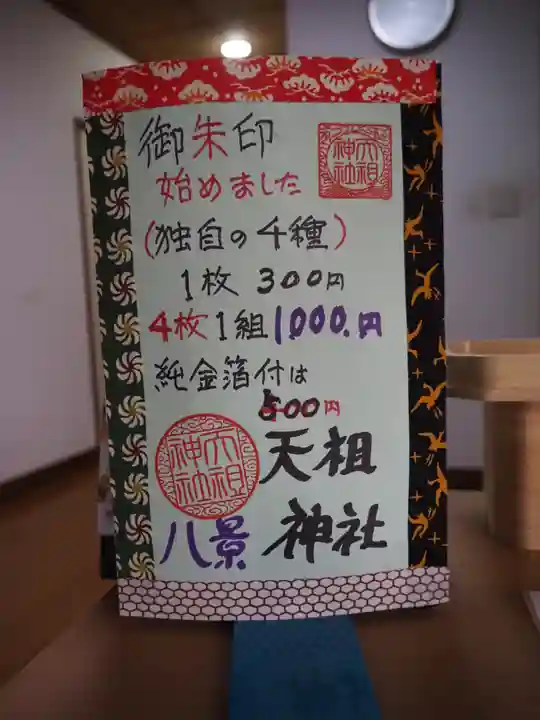 御朱印
始めました
天祖
神社
(独自の4種)
1枚 300円
4枚1組1000.円
純金箔付は
500円
天祖
神社
八景
天祖
神社